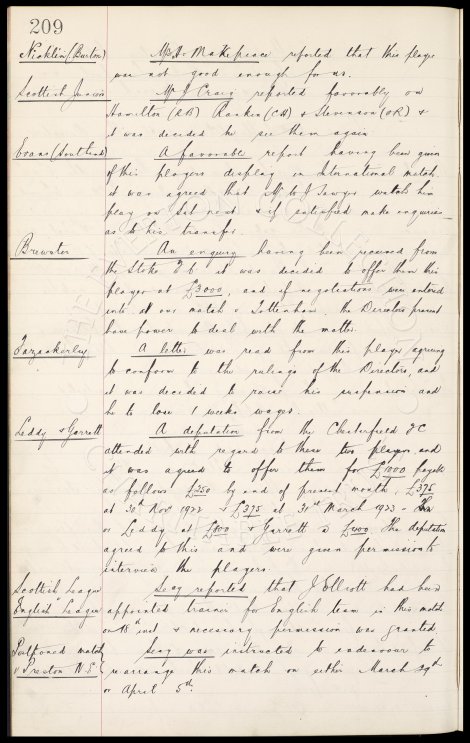 209
Nicklin (Burton) Mr H. Makepeace reported that this player
was not good enough for us.
Scottish Juniors Mr J Craig reported favorably on
Hamilton (RB) Rankin (CH) & Stevenson (OR) &
it was decided he see them again
Evans (Southend) A favorable report having been given
of this players display in International match
it was agreed that Mr W J Sawyer watch him
play on Sat next & if satisfied make enquiries
as to his transfer.
Brewster An enquiry having been received from
the Stoke F C it was decided to offer them this
player at £3000, and if negotiations were entered
into at our match v Tottenham the Directors present
have power to deal with the matter.
Fazackerley A letter was read from this player agreeing
to conform to the rulings of the Directors, and
it was decided to raise his suspension and
he to lose 1 weeks wages.
Leddy & Garratt A deputation from the Chesterfield F C
attended with regard to these two players and
it was agreed to offer them for £1000 payable
as follows £250 by end of present month, £375
at 30th Nov 1922 & £375 at 31st March 1923 -
or Leddy at £800 & Garratt @ £400 The deputation
agreed to this and were given permission to
interview the players.
Scottish League Secy reported that J Elliott had been
English League appointed trainer for English team in this match
on 18th inst & necessary permission was granted
Postponed match Secy was instructed to endeavour to
v Preston N.E. rearrange this match on either March 29th
or April 5th.